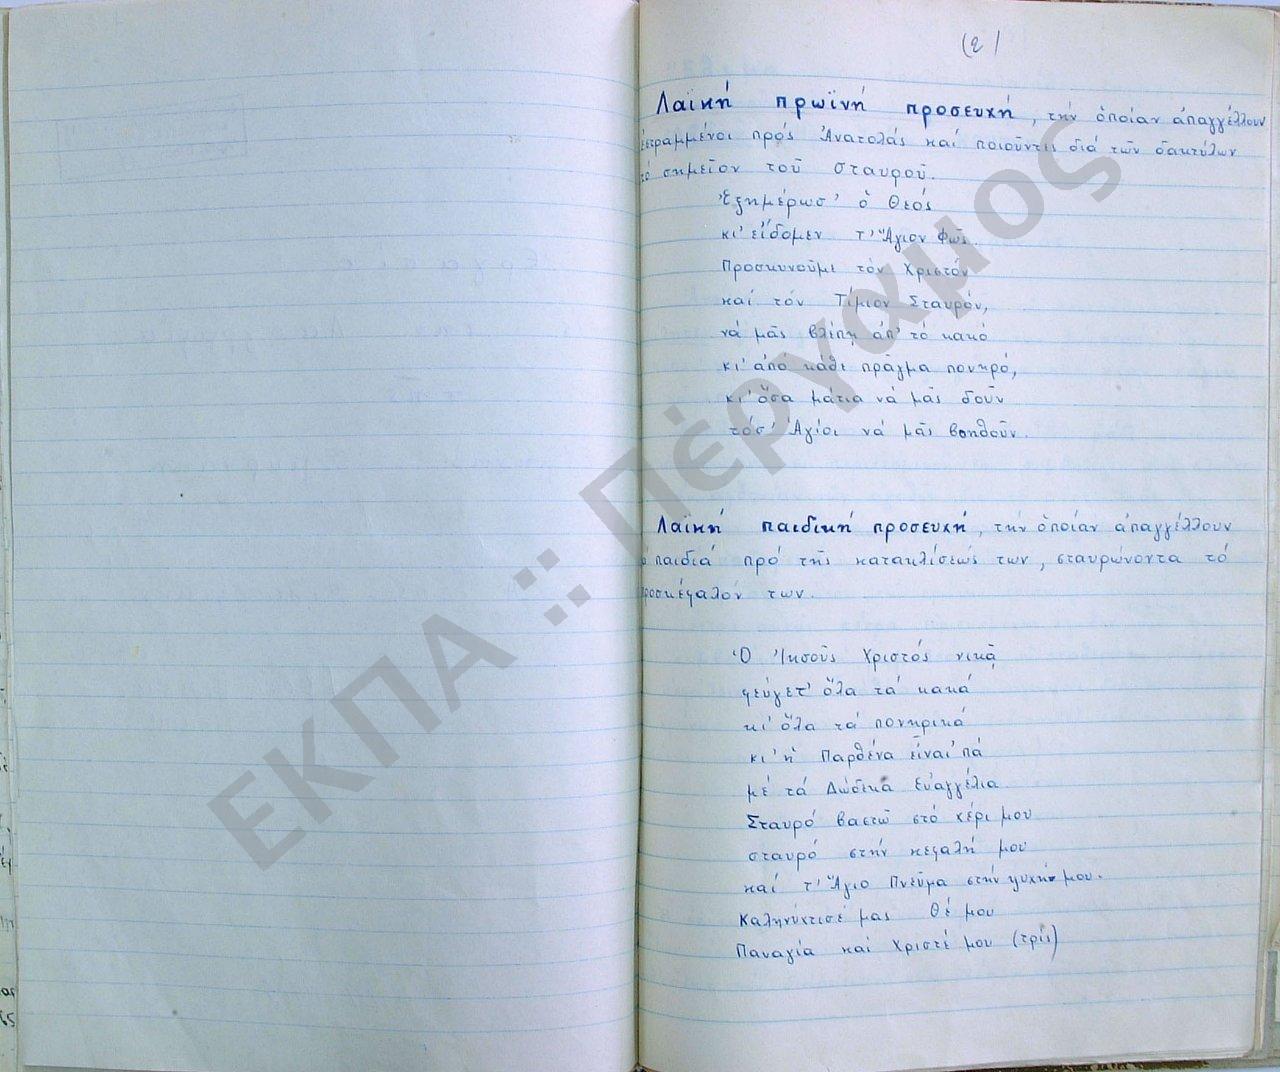 (2)
Λαϊκή πρωϊνή προσευχή, τήν ὁποίαν ἀπαγγέλλουν
ἐστραμμένοι πρός Ἀνατολάς καί ποιοῦντες διά τῶν δακτύλων
τό σημεῖον τοῦ σταυροῦ.
Ἐξημέρωσ' ὁ Θεός
κι' εἴδομεν τ' Ἅγιον Φῶς
Προσκυνοῦμε τόν Χριστόν
καί τόν Τίμιον Σταυρόν,
νά μᾶς βλέπῃ ἀπ' τό κακό
κι' ἀπό κάθε πρᾶγμα πονηρό,
κι' ὅσα μάτια νά μᾶς δοῦν
τόσ' Ἅγιοι νά μᾶς βοηθοῦν.
Λαϊκή παιδική προσευχή, τήν ὁποίαν ἀπαγγέλλουν
παιδιά πρό τῆς κατακλίσεώς των, σταυρώνοντα τό
προσκέφαλόν των.
Ὁ Ἰησοῦς Χριστός νικᾷ
φεύγετ' ὅλα τά κακά
κι' ὅλα τά πονηρικά
κι' ἡ Παρθένα εἶναι 'πά
μέ τά Δώδεκα Εὐαγγέλια.
Σταυρό βαστῶ στό χέρι μου
σταυρό στήν κεφαλή μου
καί τ' Ἅγιο Πνεῦμα στήν ψυχή μου.
Καληνύχτισέ μας Θέ μου
Παναγία καί Χριστέ μου (τρίς)
ΕΚΠΑ :: Πέργαμος